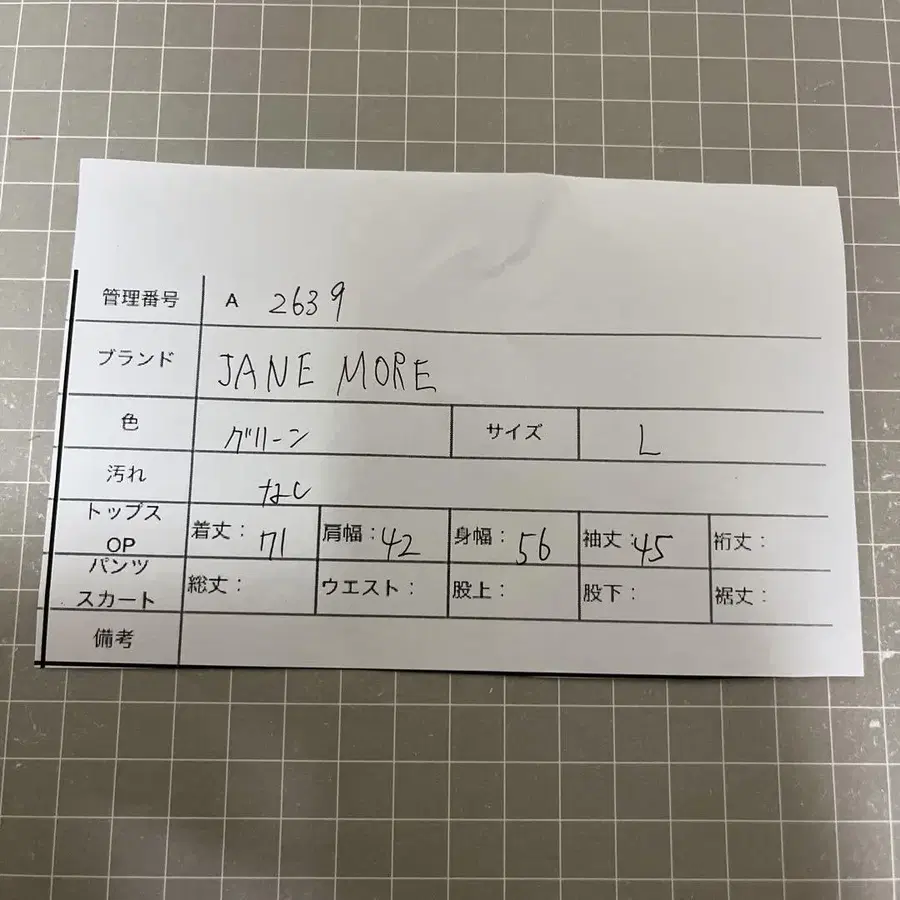 管理番号 A 2639
ブランド JANE MORE
色 グリーン サイズ L
汚れ なし
トップス
OP 着丈: 71 肩幅: 42 身幅: 56 袖丈: 45 裄丈:
パンツ
スカート 総丈: ウエスト: 股上: 股下: 裾丈:
備考